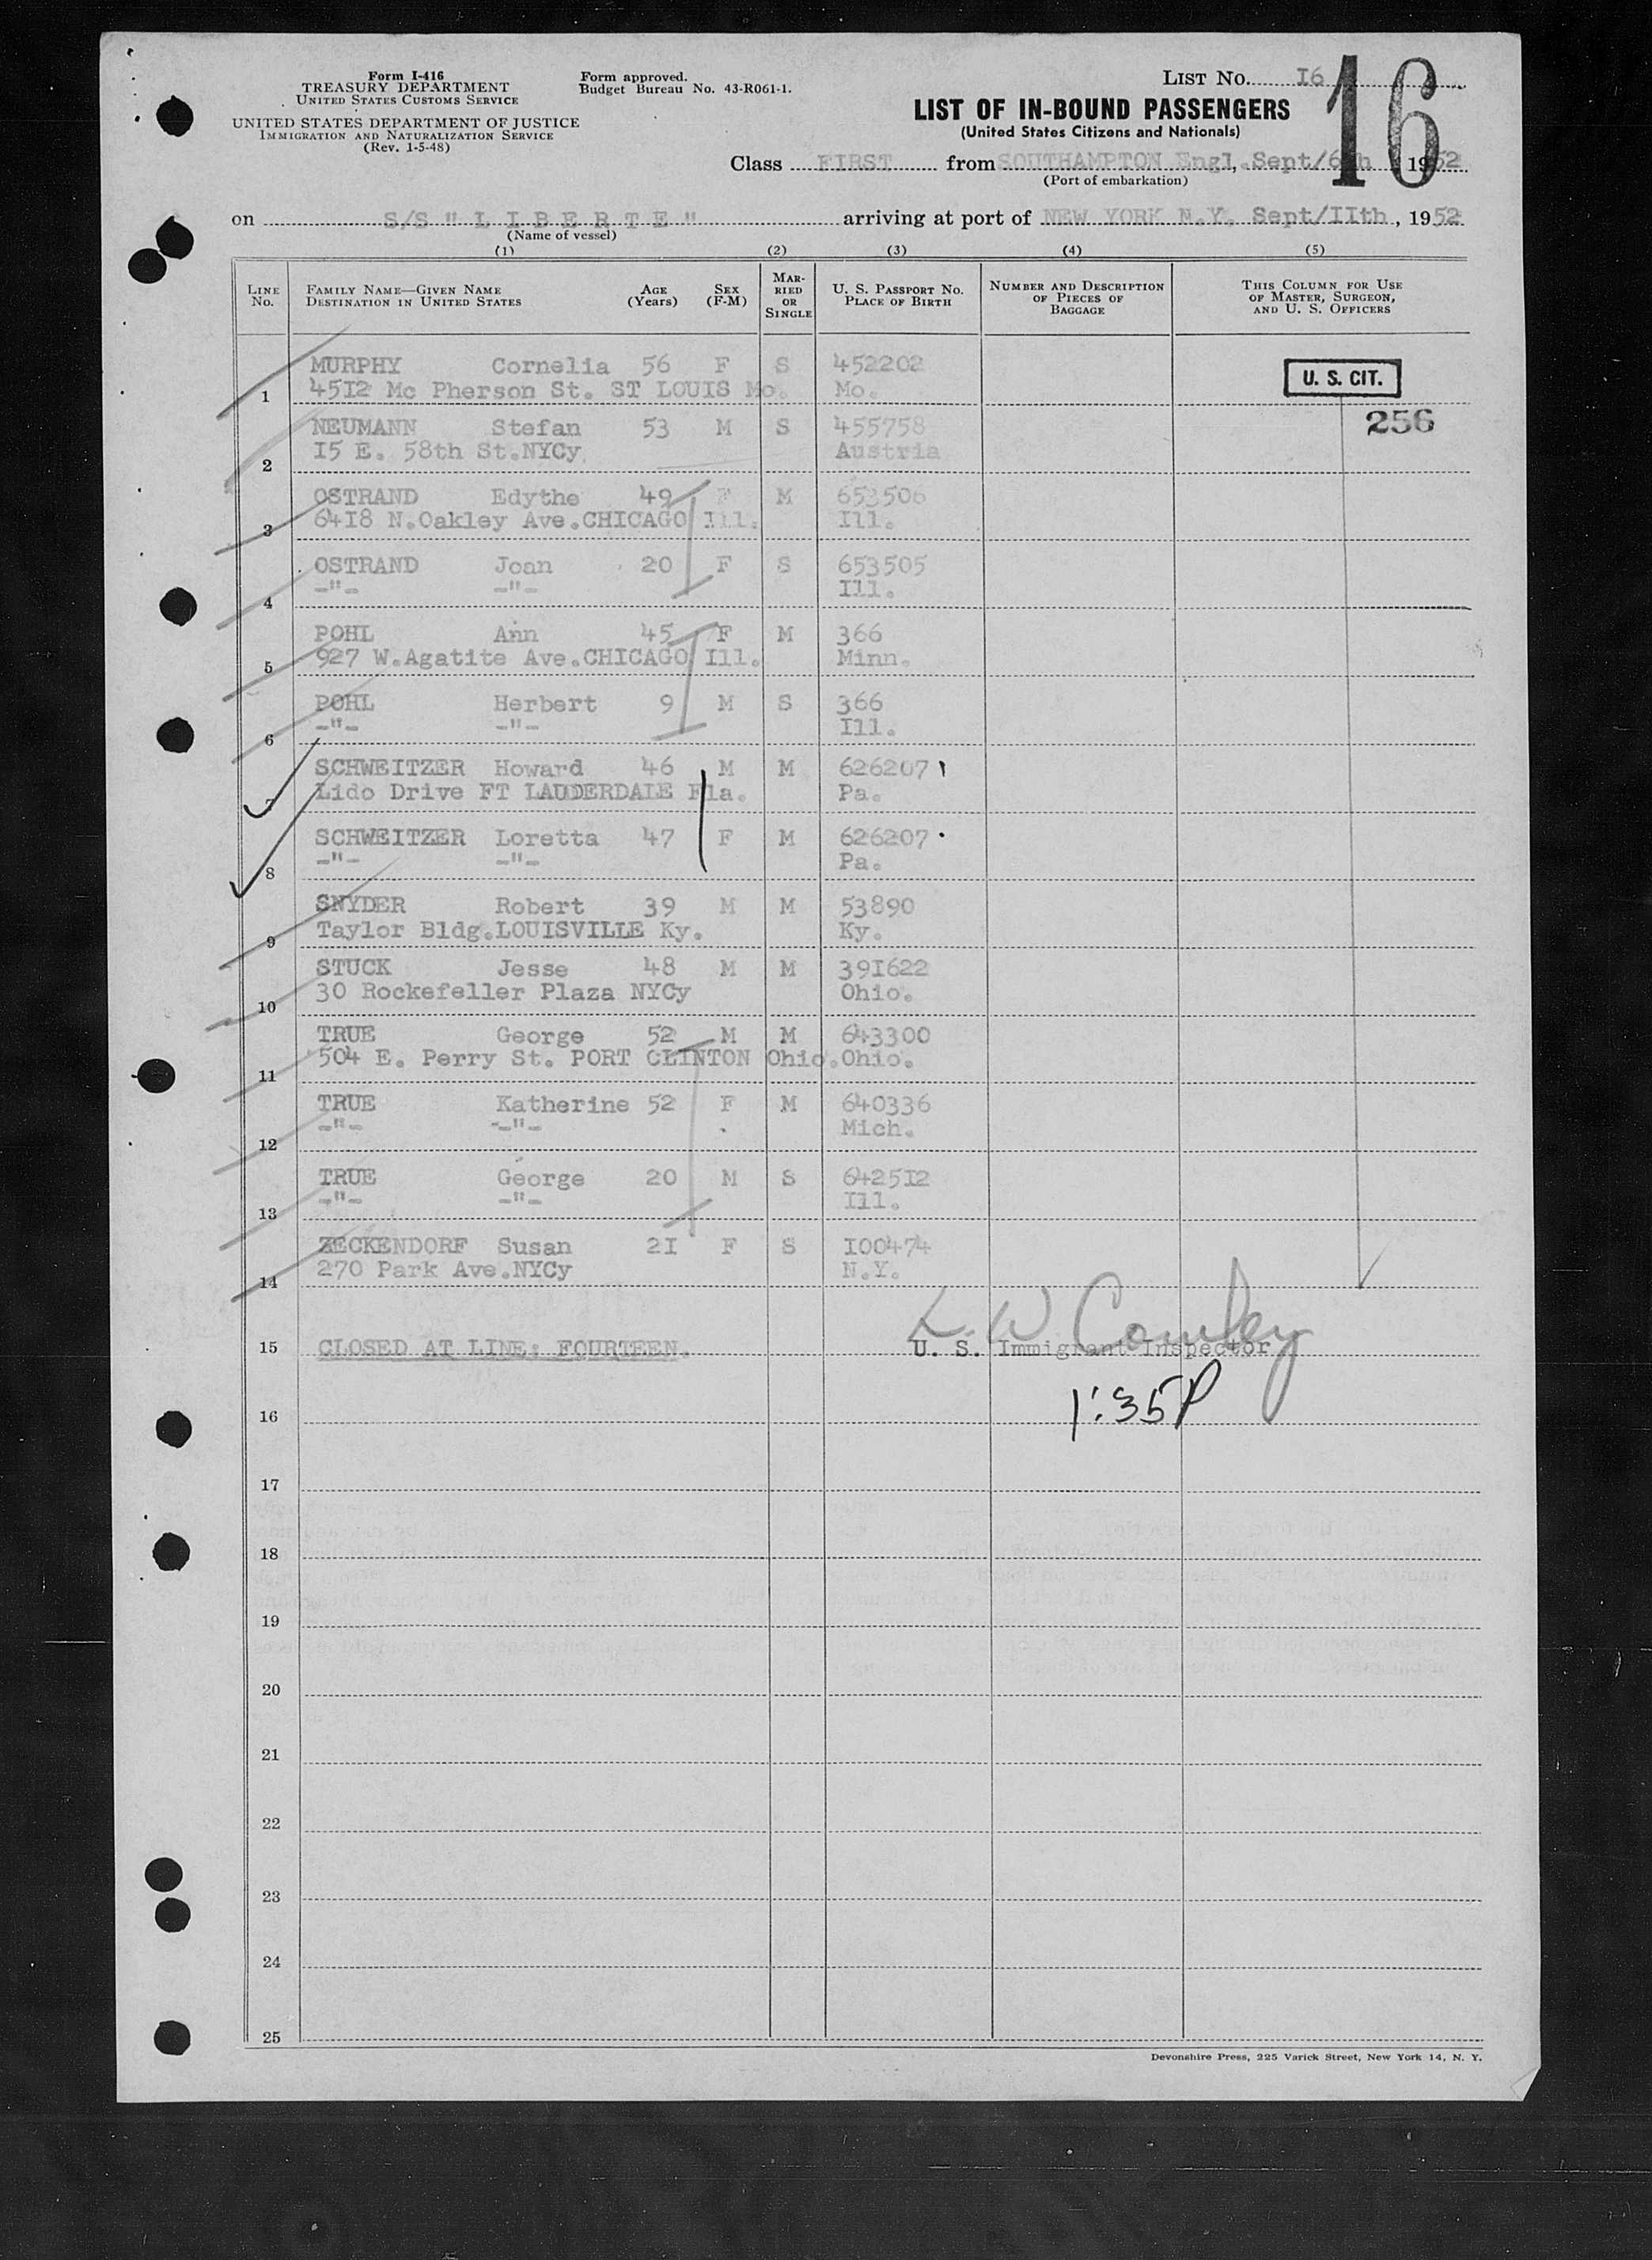 Form I-416
TREASURY DEPARTMENT
UNITED STATES CUSTOMS SERVICE
UNITED STATES DEPARTMENT OF JUSTICE
IMMIGRATION AND NATURALIZATION SERVICE
(Rev. 1-5-48)
Form approved.
Budget Bureau No. 43-R061-1.
LIST NO. I6
16
LIST OF IN-BOUND PASSENGERS
(United States Citizens and Nationals)
Class FIRST from SOUTHAMPTON Engl. Sept/6th 1952
(Port of embarkation)
on S/S " L I B E R T E " arriving at port of NEW YORK N.Y. Sept/IIth, 1952
(Name of vessel)
(1) (2) (3) (4) (5)
LINE NO. FAMILY NAME—GIVEN NAME DESTINATION IN UNITED STATES AGE (Years) SEX (F-M) MARRIED OR SINGLE U. S. PASSPORT NO. PLACE OF BIRTH NUMBER AND DESCRIPTION OF PIECES OF BAGGAGE THIS COLUMN FOR USE OF MASTER, SURGEON, AND U. S. OFFICERS
MURPHY Cornelia 56 F S 452202 U. S. CIT.
1 45I2 Mc Pherson St. ST LOUIS Mo. Mo.
NEUMANN Stefan 53 M S 455758 256
2 I5 E. 58th St.NYCy Austria
OSTRAND Edythe 49 F M 653506
3 64I8 N.Oakley Ave.CHICAGO Ill. Ill.
OSTRAND Joan 20 F S 653505
4 -"- -"- Ill.
POHL Ann 45 F M 366
5 927 W.Agatite Ave.CHICAGO Ill. Minn.
POHL Herbert 9 M S 366
6 -"- -"- Ill.
SCHWEITZER Howard 46 M M 626207
7 Lido Drive FT LAUDERDALE Fla. Pa.
SCHWEITZER Loretta 47 F M 626207
8 -"- -"- Pa.
SNYDER Robert 39 M M 53890
9 Taylor Bldg.LOUISVILLE Ky. Ky.
STUCK Jesse 48 M M 39I622
10 30 Rockefeller Plaza NYCy Ohio.
TRUE George 52 M M 643300
11 504 E. Perry St. PORT CLINTON Ohio. Ohio.
TRUE Katherine 52 F M 640336
12 -"- -"- Mich.
TRUE George 20 M S 6425I2
13 -"- -"- Ill.
ZECKENDORF Susan 2I F S I00474
14 270 Park Ave.NYCy N.Y.
15 CLOSED AT LINE: FOURTEEN. U. S. Immigrant Inspector
1:35P
16
17
18
19
20
21
22
23
24
25
Devonshire Press, 225 Varick Street, New York 14, N. Y.